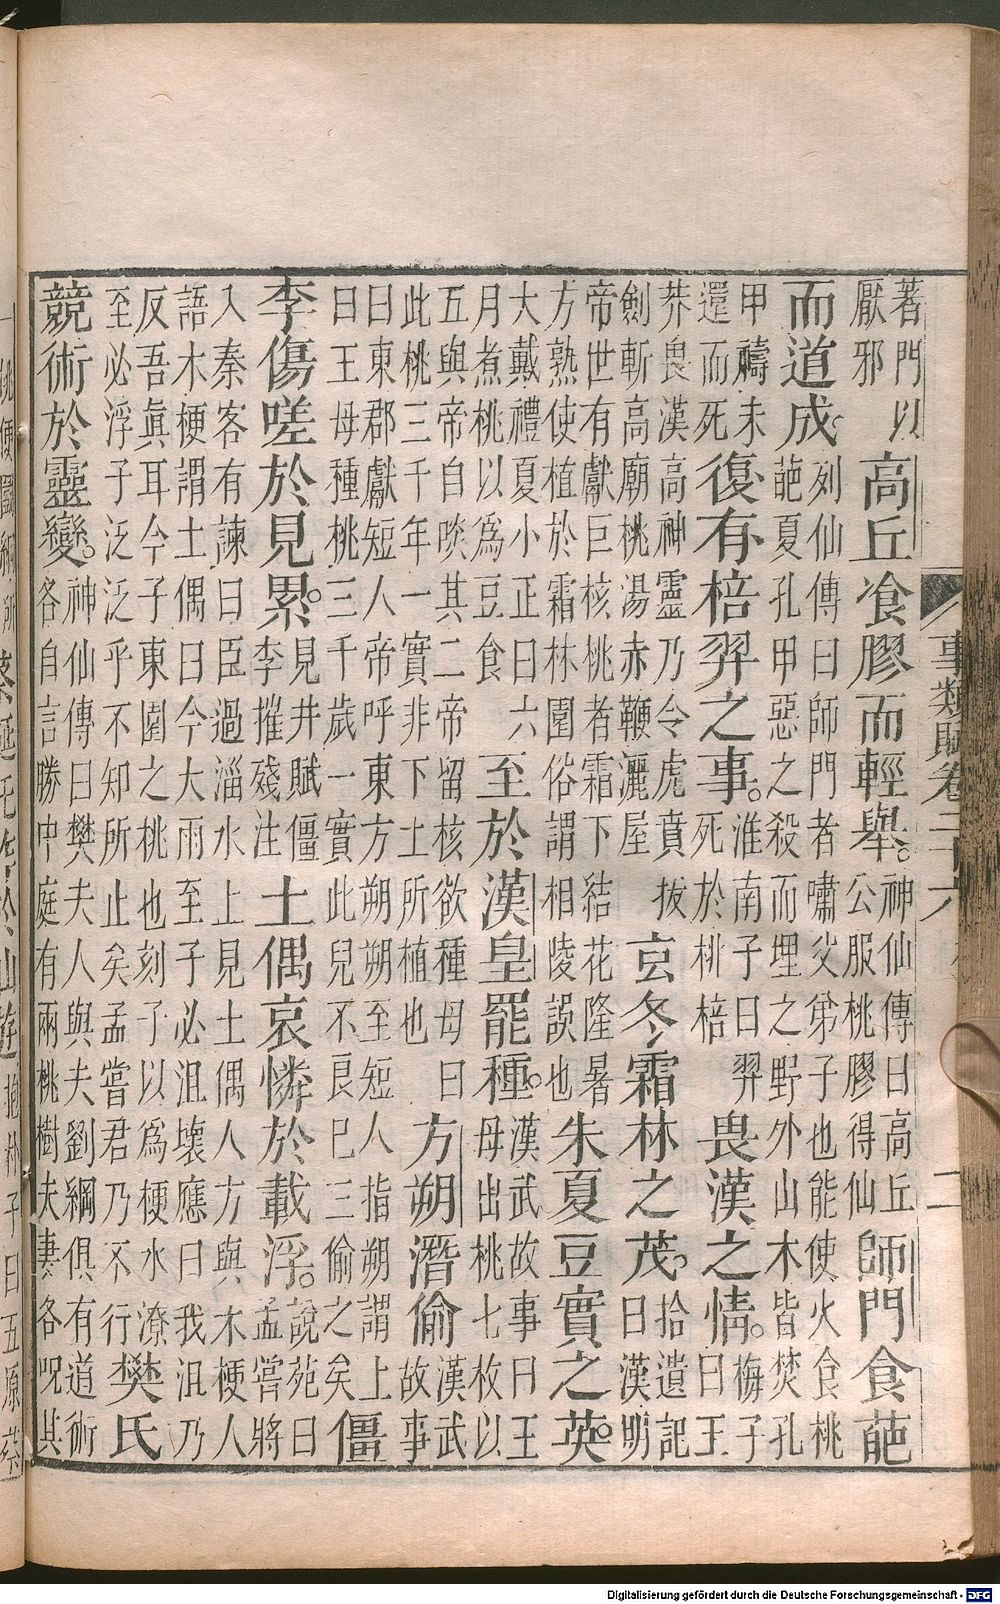 著門以厭邪高丘飡膠而輕舉。神仙傳曰高丘公服桃膠得仙師門食葩
而道成列仙傳曰師門者嘯父弟子也能使火食桃葩夏孔甲惡之殺而埋之野外山木皆焚孔
甲禱未還而死復有棓羿之事。淮南子曰羿死於桃棓畏漢之情。梅子曰王
莽畏漢高神靈乃令虎賁拔劍斬高廟桃湯赤鞭灑屋玄冬霜林之茂。拾遺記曰漢明
帝世有獻巨核桃者霜下結花隆暑方熟使植於霜林園俗謂相陵誤也朱夏豆實之英。
大戴禮夏小正曰六月煮桃以爲豆食至於漢皇罷種。漢武故事曰王母出桃七枚以
五與帝自啖其二帝留核欲種母曰此桃三千年一實非下土所植也方朔潛偷漢武故事
曰東郡獻短人帝呼東方朔朔至短人指朔謂上曰王母種桃三千歲一實此兒不良巳三偷之矣僵
李傷嗟於見累。見井賦僵李摧殘注土偶哀憐於載浮。說苑曰孟嘗將
入秦客有諫曰臣過淄水上見土偶人方與木梗人語木梗謂土偶曰今大雨至子必沮壞應曰我沮乃
反吾眞耳今子東園之桃也刻子以爲梗水潦至必浮子泛泛乎不知所止矣孟嘗君乃不行樊氏
競術於靈變。神仙傳曰樊夫人與夫劉綱俱有道術各自言勝中庭有兩桃樹夫妻各呪其
事類賦卷二十六
二
Digitalisierung gefördert durch die Deutsche Forschungsgemeinschaft - DFG